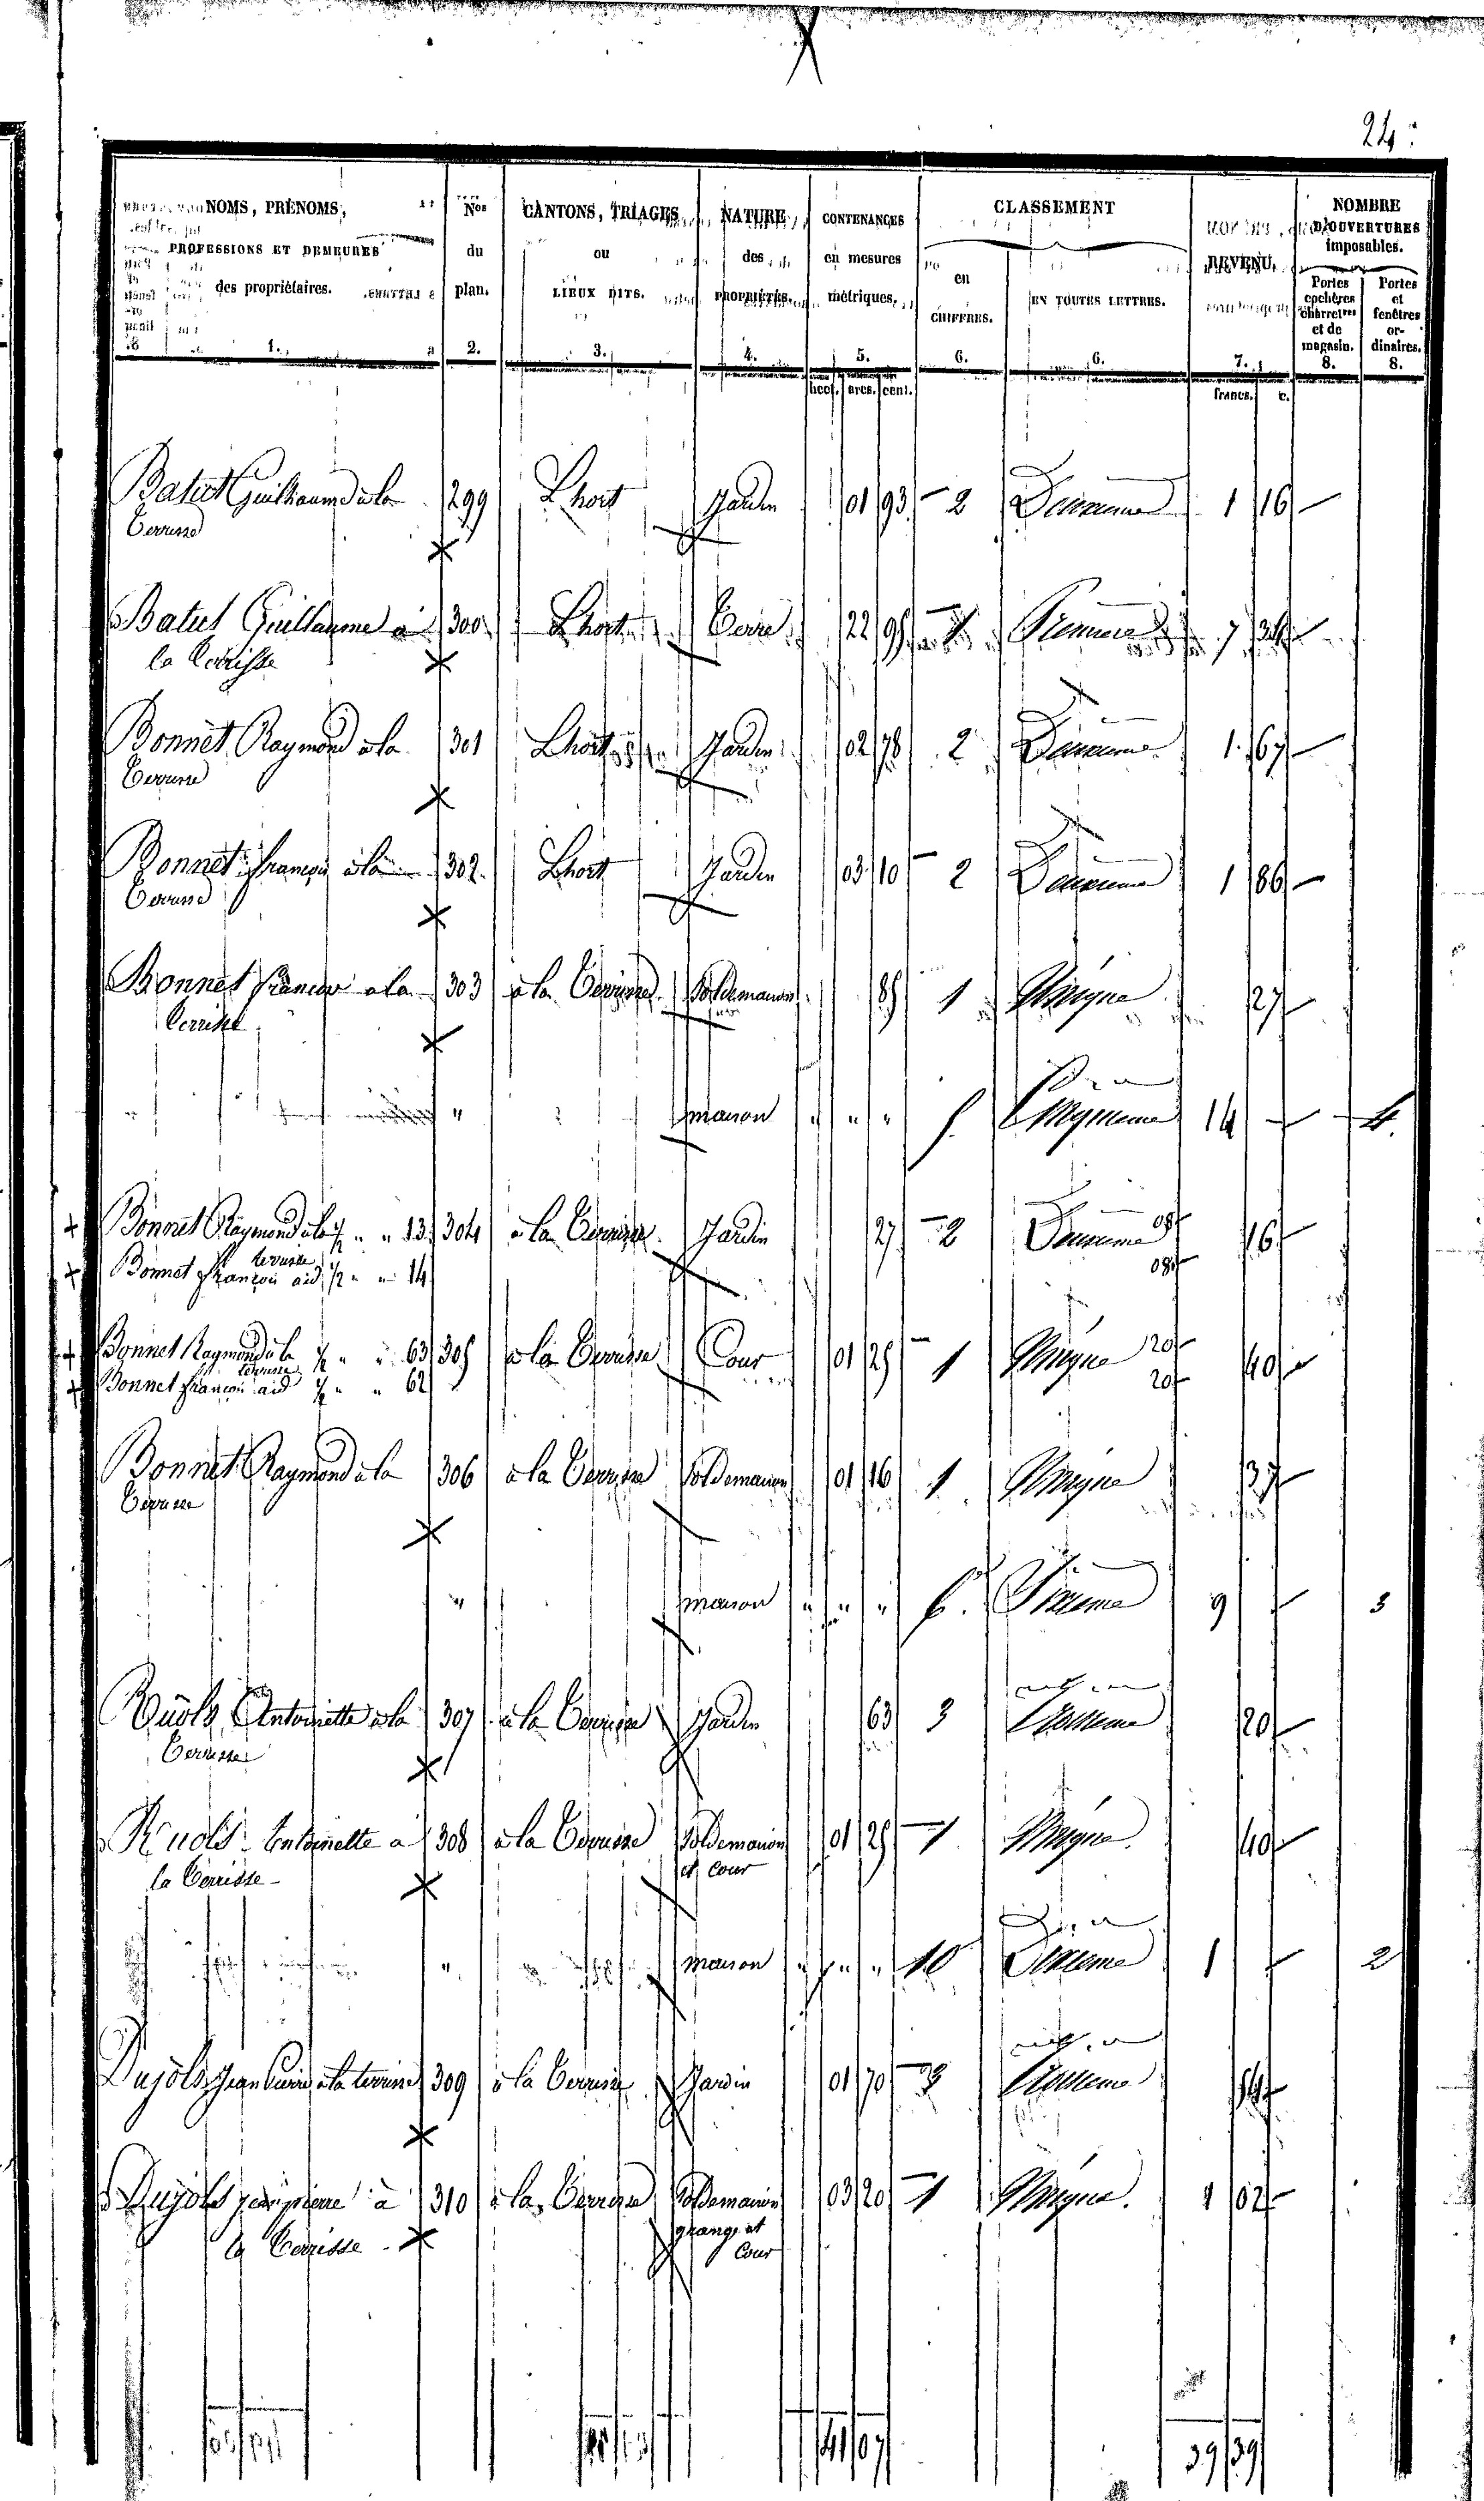 24
NOMS, PRÉNOMS,
PROFESSIONS ET DEMEURES
des propriétaires.
1.
Nos
du
plan.
2.
CANTONS, TRIAGES
ou
LIEUX DITS.
3.
NATURE
des
PROPRIÉTÉS.
4.
CONTENANCES
en mesures
métriques.
5.
hect. ares. cent.
CLASSEMENT
en
CHIFFRES.
6.
EN TOUTES LETTRES.
6.
REVENU.
7.
francs. c.
NOMBRE
D'OUVERTURES
imposables.
Portes
cochères
charretres
et de
magasin.
8.
Portes
et
fenêtres
or-
dinaires.
8.
Batut Guillaume à la 299 Lhort Jardin 01 93 2 Deuxieme 1 16
Terrisse
Batut Guillaume à 300 Lhort Terre 22 95 Premiere 7 34
la Terrisse
Bonnet Raymond à la 301 Lhort Jardin 02 78 2 Deuxieme 1 67
Terrisse
Bonnet françois à la 302 Lhort Jardin 03 10 2 Deuxieme 1 86
Terrisse
Bonnet françois à la 303 à la Terrisse Sol de maison 85 1 Unique 27
Terrisse
" maison " " " 5. Cinquieme 14 4
Bonnet Raymond à la 1/2 " " 13 304 à la Terrisse Jardin 27 2 Deuxieme 08 16
terrisse
Bonnet françois aid 1/2 " " 14 08
Bonnet Raymond à la 1/2 " " 63 305 à la Terrisse Cour 01 25 1 Unique 20 40
terrisse
Bonnet françois aid 1/2 " " 62 20
Bonnet Raymond à la 306 à la Terrisse Sol de maison 01 16 1 Unique 37
Terrisse
" maison " " " 6. Sixieme 9 3
Ruols Antoinette à la 307 à la Terrisse Jardin 63 3 Troisieme 20
Terrisse
Ruols Antoinette à 308 à la Terrisse Sol de maison 01 25 1 Unique 40
la Terrisse et Cour
" maison " " " 10 Dixieme 1 2
Dujols Jean Pierre à la terrisse 309 à la Terrisse Jardin 01 70 3 Troisieme 54
Dujols jean pierre à 310 à la Terrisse Sol de maison 03 20 1 Unique. 1 02
la Terrisse grange et
Cour
41 07 39 39